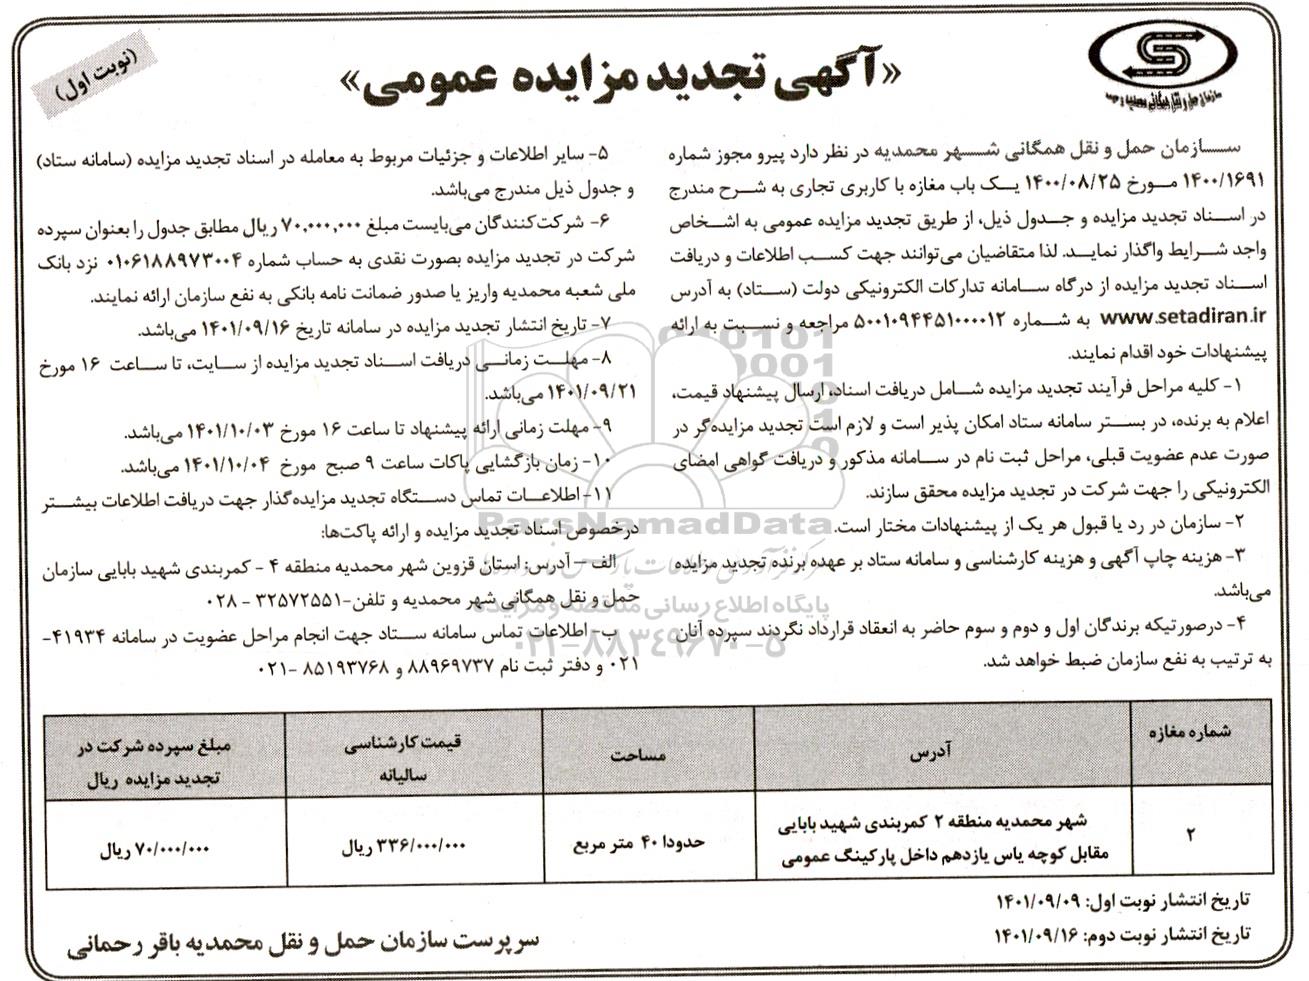 (نوبت اول)
«آگهی تجدید مزایده عمومی»
ســازمان حمل و نقل همگانی شــهر محمدیه در نظر دارد پیرو مجوز شماره
۱۴۰۰/۱۶۹۱ مــورخ ۱۴۰۰/۰۸/۲۵ یــک باب مغازه با کاربری تجاری به شــرح مندرج
در اسناد تجدید مزایده و جــدول ذیل، از طریق تجدید مزایده عمومی به اشــخاص
واجد شــرایط واگذار نمایــد. لذا متقاضیان می‌توانند جهت کسب اطلاعات و دریافت
اســناد تجدید مزایده از درگاه ســامانه تدارکات الکترونیکی دولت (ستاد) به آدرس
www.setadiran.ir به شــماره ۵۰۰۱۰۹۴۴۵۱۰۰۰۰۱۲ مراجعه و نسبت به ارائه
پیشنهادات خود اقدام نمایند.
۱- کلیه مراحل فرآیند تجدید مزایده شــامل دریافت اسناد، ارسال پیشنهاد قیمت،
اعلام به برنده، در بســتر سامانه ستاد امکان پذیر است و لازم است تجدید مزایده‌گر در
صورت عدم عضویت قبلی، مراحل ثبت نام در ســامانه مذکور و دریافت گواهی امضای
الکترونیکی را جهت شرکت در تجدید مزایده محقق سازند.
۲- سازمان در رد یا قبول هر یک از پیشنهادات مختار است.
۳- هزینه چاپ آگهی و هزینه کارشناسی و سامانه ستاد بر عهده برنده تجدید مزایده
می‌باشد.
۴- درصورتیکه برندگان اول و دوم و سوم حاضر به انعقاد قرارداد نگردند سپرده آنان
به ترتیب به نفع سازمان ضبط خواهد شد.
۵- سایر اطلاعات و جزئیات مربوط به معامله در اسناد تجدید مزایده (سامانه ستاد)
و جدول ذیل مندرج می‌باشد.
۶- شرکت‌کنندگان می‌بایست مبلغ ۷۰,۰۰۰,۰۰۰ ریال مطابق جدول را بعنوان سپرده
شرکت در تجدید مزایده بصورت نقدی به حساب شماره ۰۱۰۶۱۸۸۹۷۳۰۰۴ نزد بانک
ملی شعبه محمدیه واریز یا صدور ضمانت نامه بانکی به نفع سازمان ارائه نمایند.
۷- تاریخ انتشار تجدید مزایده در سامانه تاریخ ۱۴۰۱/۰۹/۱۶ می‌باشد.
۸- مهلــت زمانــی دریافت اســناد تجدید مزایده از ســایت، تا ســاعت ۱۶ مورخ
۱۴۰۱/۰۹/۲۱ می‌باشد.
۹- مهلت زمانی ارائه پیشنهاد تا ساعت ۱۶ مورخ ۱۴۰۱/۱۰/۰۳ می‌باشد.
۱۰- زمان بازگشایی پاکات ساعت ۹ صبح مورخ ۱۴۰۱/۱۰/۰۴ می‌باشد.
۱۱- اطلاعــات تماس دســتگاه تجدید مزایده‌گذار جهت دریافت اطلاعات بیشــتر
درخصوص اسناد تجدید مزایده و ارائه پاکت‌ها:
الف – آدرس: استان قزوین شهر محمدیه منطقه ۴ - کمربندی شهید بابایی سازمان
حمل و نقل همگانی شهر محمدیه و تلفن-۳۲۵۷۲۵۵۱ - ۰۲۸
ب- اطلاعات تماس سامانه ســتاد جهت انجام مراحل عضویت در سامانه ۴۱۹۳۴-
۰۲۱ و دفتر ثبت نام ۸۸۹۶۹۷۳۷ و ۸۵۱۹۳۷۶۸ -۰۲۱
ParsNamadData
پایگاه اطلاع رسانی مناقصه و مزایده
۰۲۱-۸۸۳۴۹۶۷۰-۵
شماره مغازه
آدرس
مساحت
قیمت کارشناسی
سالیانه
مبلغ سپرده شرکت در
تجدید مزایده ریال
۲
شهر محمدیه منطقه ۲ کمربندی شهید بابایی
مقابل کوچه یاس یازدهم داخل پارکینگ عمومی
حدودا ۴۰ متر مربع
۳۳۶/۰۰۰/۰۰۰ ریال
۷۰/۰۰۰/۰۰۰ ریال
تاریخ انتشار نوبت اول: ۱۴۰۱/۰۹/۰۹
تاریخ انتشار نوبت دوم: ۱۴۰۱/۰۹/۱۶
سرپرست سازمان حمل و نقل محمدیه باقر رحمانی